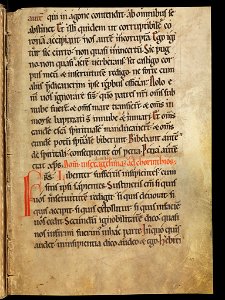 aut qui in agone contendit ab omnibus se
abstinet Et illi quidem ut corruptibile co
ronam accipiant nos aute incorrupta Ego igi
tur sic curro non quasi in incertu Sic pug
no non quasi aere uerberans sed castigo cor
pus meu & in seruitute redigo ne forte cum
aliis predicauerim ipse reprobus efficiar. Nolo e
ni uos ignorare frs qm patres nri oms sub
nube fuer & oms mare transier & oms in
moyse baptizati s in nube & in mari Et oms
eande esca spiritale manducauer & oms
eande potu spiritale biberunt Bibebant aute
de spirituali consequente eos petra Petra aute
erat xps. Dom in sexagesimas ad chorinthios
FRS. Libenter suffertis insipientes cum
sitis ipsi sapientes Sustinetis eni si quis
uos in seruitute redigit si quis deuorat si
quis accipit si quis extollitur si quis in facie
uos cedit Secundu ignobilitate dico quasi
nos infirmi fuerim in hac parte In quo quis
audet in insipientia dico audeo & ego Hebrei